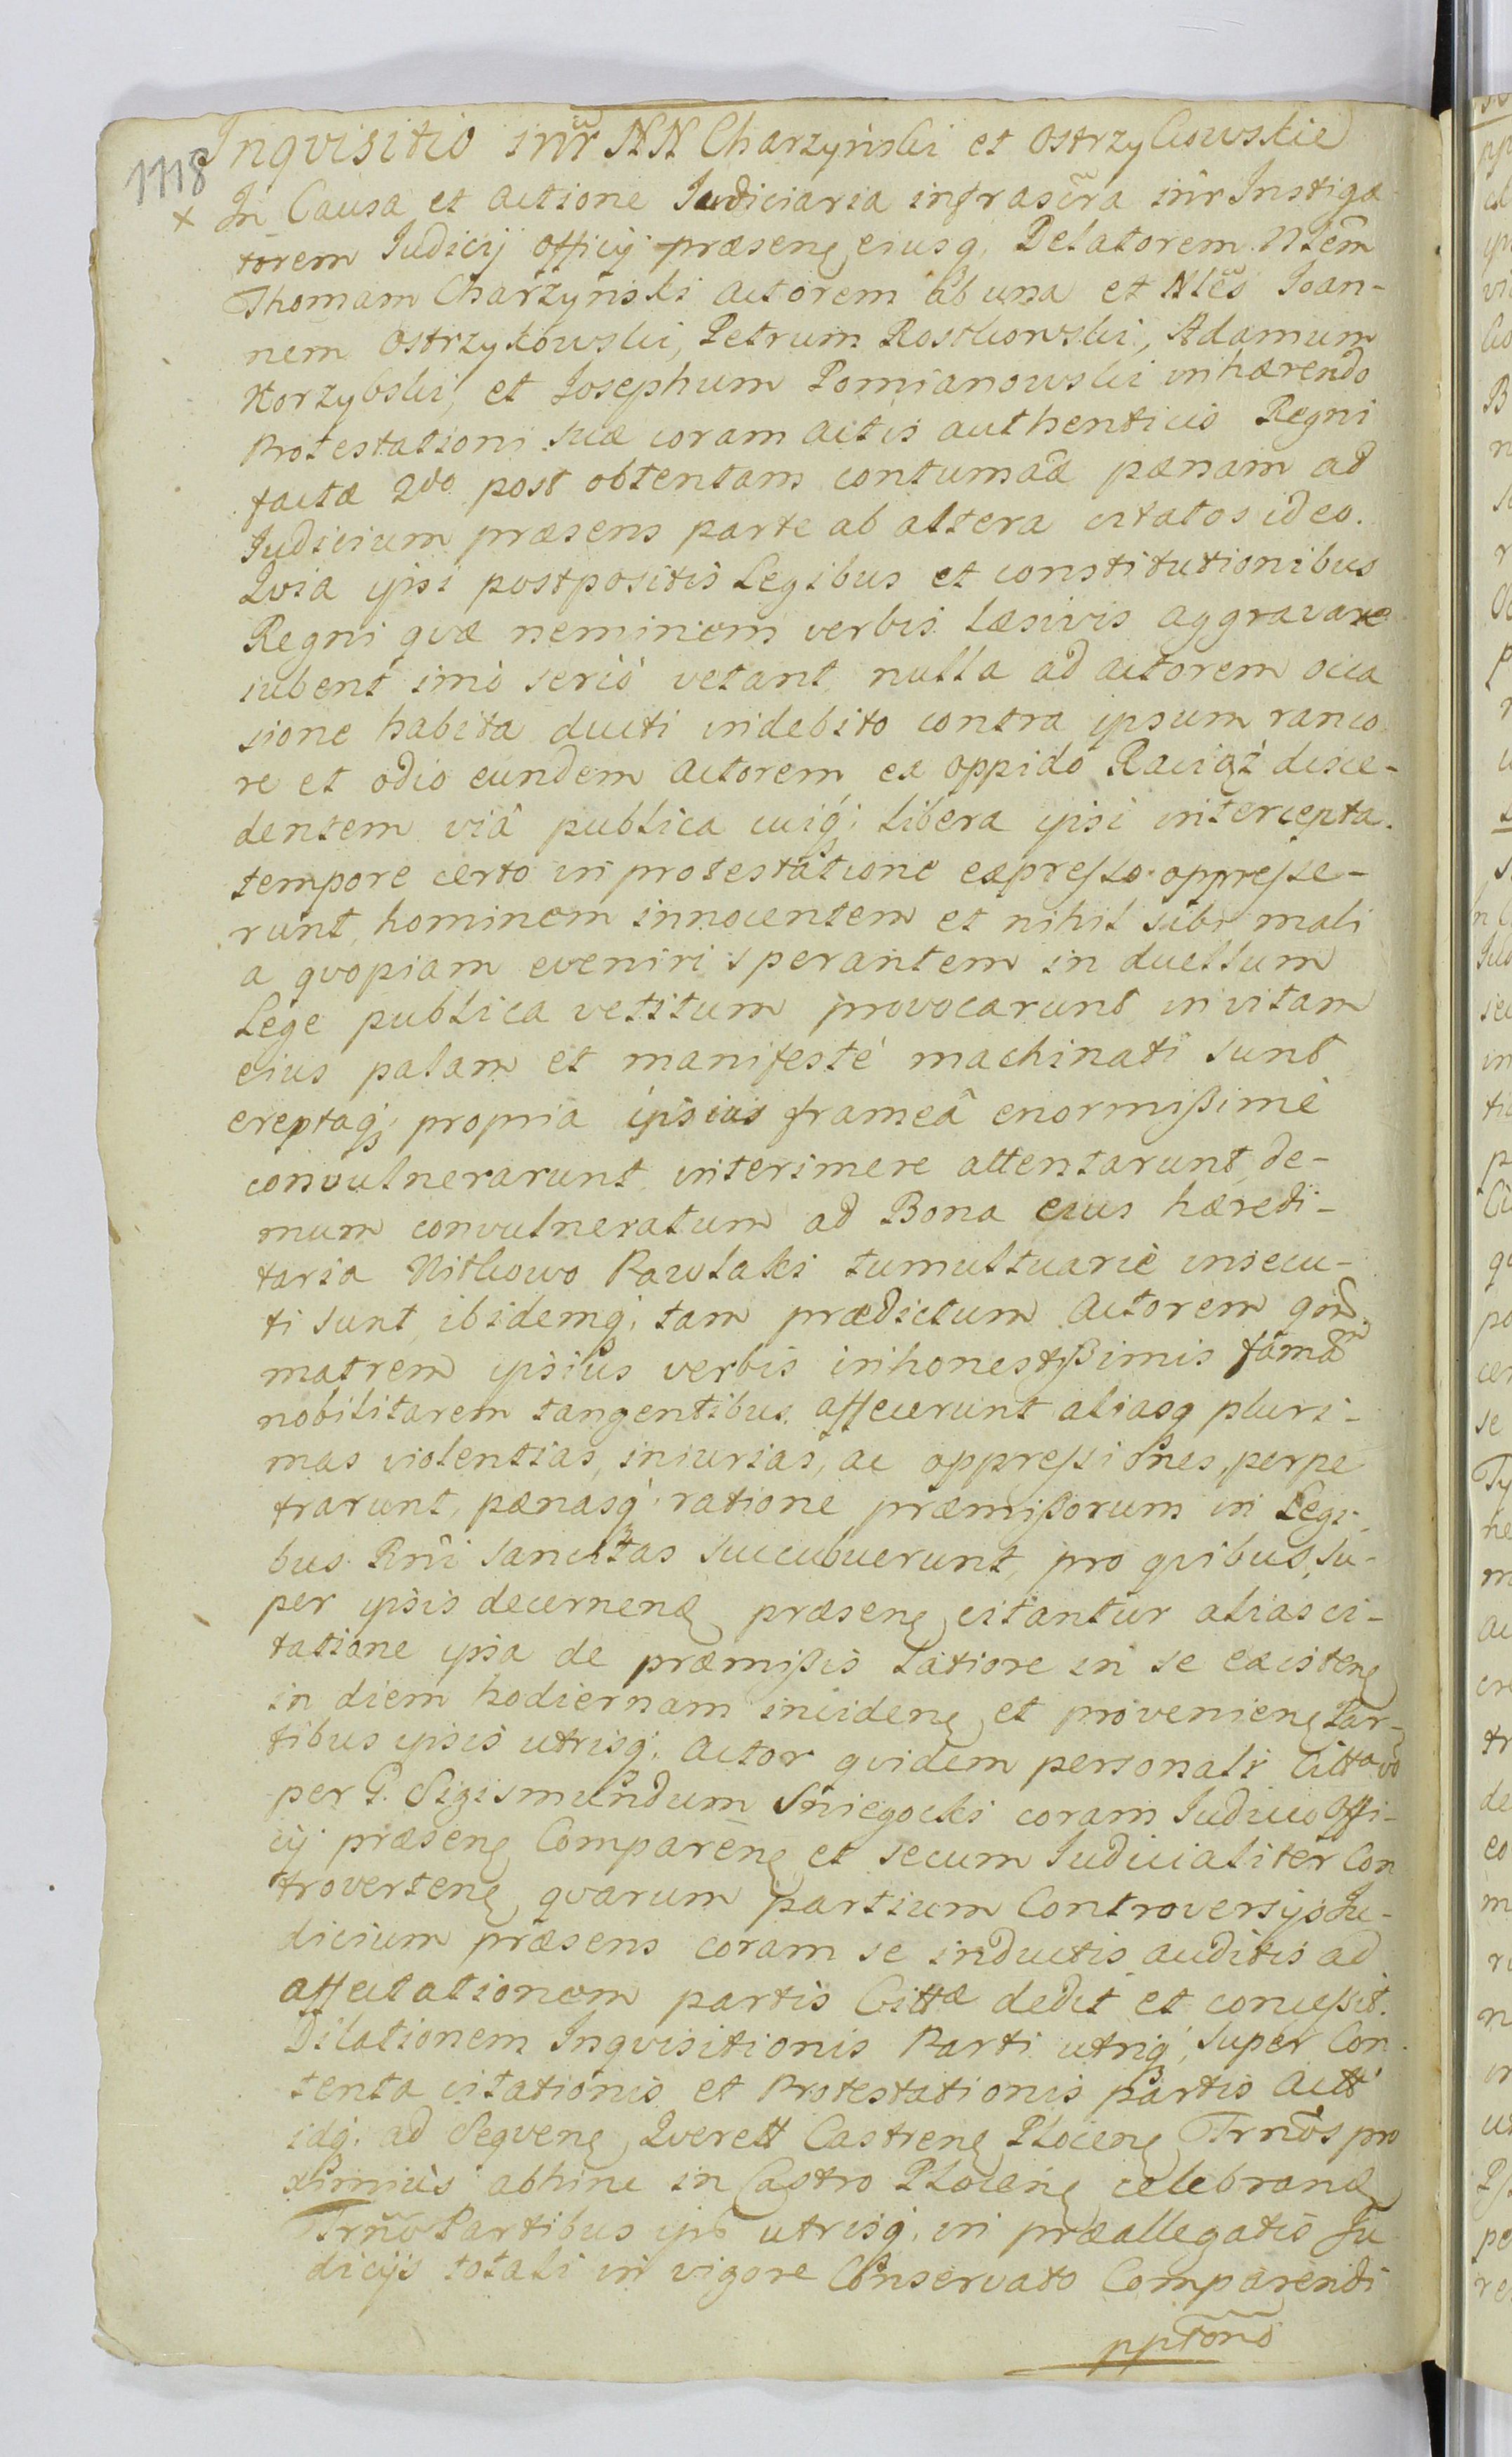 1118
Inqvisitio inr̃ NN Charzyński et Ostrzykowskie
× In Causa et actione Iudiciaria infrascr̃a inr̃ Instiga
torem Iudicij Officij præsenę eiusq, Delatorem Nl̃em
Thomam Charzyński actorem ab una et Nl̃es Ioan-
nem Ostrzykowski, Petrum Rostkowski, Adamum
Korzybski, et Josephum Pomianowski inhærendo
Protestationi suæ coram actis authenticis Regni
factæ 2do post obtentam contumaã pænam ad
Iudicium præsens parte ab altera citatos ideo.
Qvia ipsi postpositis Legibus et constitutionibus
Regni qvæ neminem verbis læsivis aggravare
iubent imò seriò vetant, nulla ad actorem occa
sione habita ducti indebito contra ipsum ranco
re et odio eundem actorem ex oppido Raciąż disce-
dentem viâ publica cuiq; libera ipsi intercepta
tempore certo in protestatione expresso oppresse-
runt, hominem innocentem et nihil sibi mali
a qvopiam eveniri sperantem in duellum
Lege publica vetitum provocarunt in vitam
eius palam et manifestè machinati sunt
ereptaq; propria ipsius frameâ enormißimè
convulnerarunt, interimere attentarunt, de-
mum convulneratum ad Bona eius hæredi-
taria Nitkowo Pawlaki tumultuariè insecu-
ti sunt, ibidemq; tam prædictum Actorem qm̃
matrem ipsius verbis inhonestißimis famã
nobilitarem tangentibus affecerunt aliasq pluri-
mas violentias, iniurias, ac oppressiones, perpe
trarunt, pænasq; ratione præmißorum in Legi-
bus Rñi sancitas succubuerunt, pro qvibus su-
per ipsis decernenę præsenę citantur alias ci-
tatione ipsa de præmißis latiore in se existenę
in diem hodiernam incidenę et provenienę Par-
tibus ipsis utrisq; Actor qvidem personalr Citta vo
per G. Sigismundum Sniegocki coram Iudicio Offi-
cij præsenę Comparenę et secum Iudicialiter Con
trovertenę qvarum partium Controversijs Iu-
dicium præsens coram se inductis auditis ad
affectationem partis Cittæ dedit et conceßit.
Dilationem Inqvisitionis Parti utriq; super Con
tenta citationis et Protestationis partis Actt
idq; ad Seqvenę Qverell Castrenę Plocenę Trños pro
ximiùs abhinc in Castro Plocenę celebranę
Trño Partibus ipis utrisq; in præallegatis Iu
dicijs totali in vigore Conservato Comparendi
pptonõ